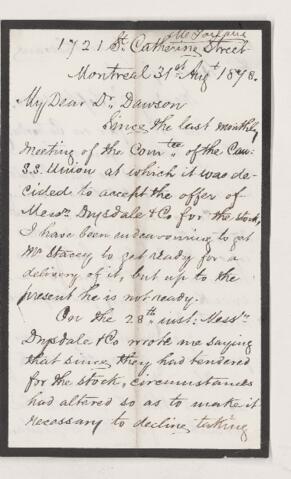 1721 St. Catherine Street
Montreal 31st Augt 1878.
My Dear Dr. Dawson
Since the last monthly
meeting of the Comtee of the Can:
S.S. Union at which it was de-
cided to accept the offer of
Messrs Drysdale & Co for the stock,
I have been endeavouring to get
Mr Stacey to get ready for a
delivery of it, but up to the
present he is not ready.
On the 28th inst: Messrs
Drysdale & Co wrote me saying
that since they had tendered
for the stock, circumstances
had altered so as to make it
necessary to decline taking